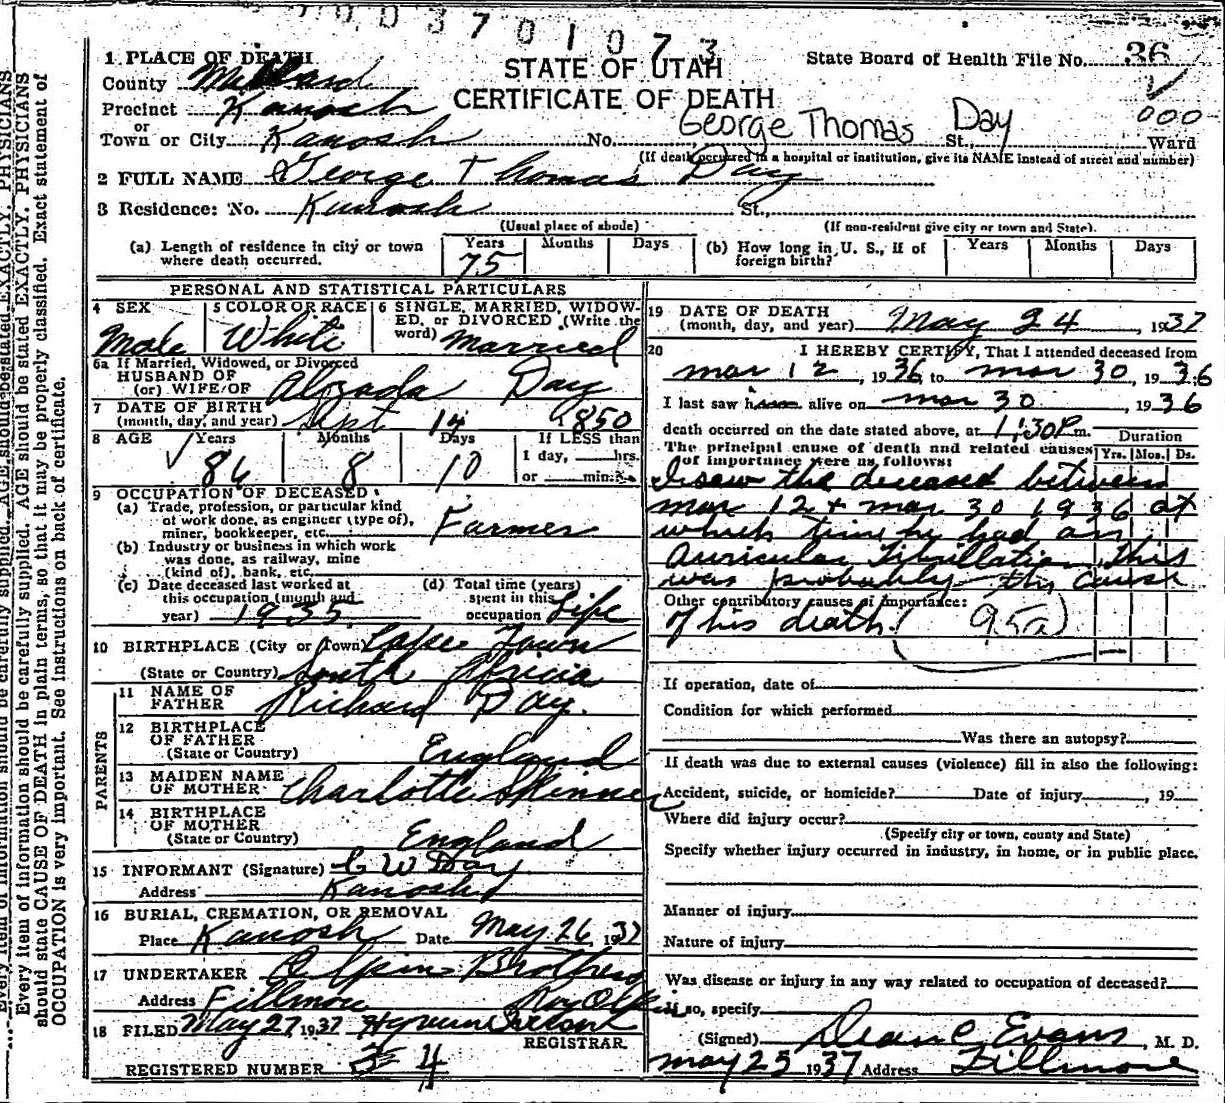 0 0 3 7 0 1 0 7 3
1 PLACE OF DEATH
County Millard
Precinct Kanosh
or
Town or City Kanosh No. St., Ward
STATE OF UTAH
CERTIFICATE OF DEATH
State Board of Health File No. 36
000
George Thomas Day
(If death occurred in a hospital or institution, give its NAME instead of street and number)
2 FULL NAME George Thomas Day
3 Residence: No. Kanosh St.,
(Usual place of abode) (If non-resident give city or town and State).
(a) Length of residence in city or town where death occurred. Years 75 Months Days
(b) How long in U. S., if of foreign birth? Years Months Days
PERSONAL AND STATISTICAL PARTICULARS
4 SEX Male
5 COLOR OR RACE White
6 SINGLE, MARRIED, WIDOWED, or DIVORCED (Write the word) Married
6a If Married, Widowed, or Divorced
HUSBAND OF
(or) WIFE OF Alzada Day
7 DATE OF BIRTH
(month, day, and year) Sept 14 1850
8 AGE Years 86 Months 8 Days 10 If LESS than
1 day, hrs.
or min.
9 OCCUPATION OF DECEASED
(a) Trade, profession, or particular kind
of work done, as engineer (type of),
miner, bookkeeper, etc. Farmer
(b) Industry or business in which work
was done, as railway, mine
(kind of), bank, etc.
(c) Date deceased last worked at
this occupation (month and
year) 1935
(d) Total time (years)
spent in this
occupation Life
10 BIRTHPLACE (City or Town) Cape Town
(State or Country) South Africa
PARENTS
11 NAME OF
FATHER Richard Day.
12 BIRTHPLACE
OF FATHER
(State or Country) England
13 MAIDEN NAME
OF MOTHER Charlotte Skinner
14 BIRTHPLACE
OF MOTHER
(State or Country) England
15 INFORMANT (Signature) C W Day
Address Kanosh
16 BURIAL, CREMATION, OR REMOVAL
Place Kanosh Date May 26, 1937
17 UNDERTAKER Olpin Brothers
Address Fillmore Roy Olpin
18 FILED May 27, 1937
REGISTRAR.
REGISTERED NUMBER 4
19 DATE OF DEATH
(month, day, and year) May 24, 1937
20 I HEREBY CERTIFY, That I attended deceased from
mar 12, 1936 to mar 30, 1936
I last saw h alive on mar 30, 1936
death occurred on the date stated above, at 1:30 P. m.
The principal cause of death and related causes
of importance were as follows:
Duration
Yrs. Mos. Ds.
I saw the deceased between
mar 12 + mar 30 1936 at
which time he had an
Auricular Fibrillation. This
was probably the cause
Other contributory causes of importance:
of his death. (95a)
If operation, date of
Condition for which performed
Was there an autopsy?
If death was due to external causes (violence) fill in also the following:
Accident, suicide, or homicide? Date of injury, 19
Where did injury occur?
(Specify city or town, county and State)
Specify whether injury occurred in industry, in home, or in public place.
Manner of injury
Nature of injury
Was disease or injury in any way related to occupation of deceased?
If so, specify
(Signed) Dean C Evans, M. D.
may 25 1937 Address Fillmore
Every item of information should be carefully supplied. AGE should be stated EXACTLY. PHYSICIANS
should state CAUSE OF DEATH in plain terms, so that it may be properly classified. Exact statement of
OCCUPATION is very important. See instructions on back of certificate.